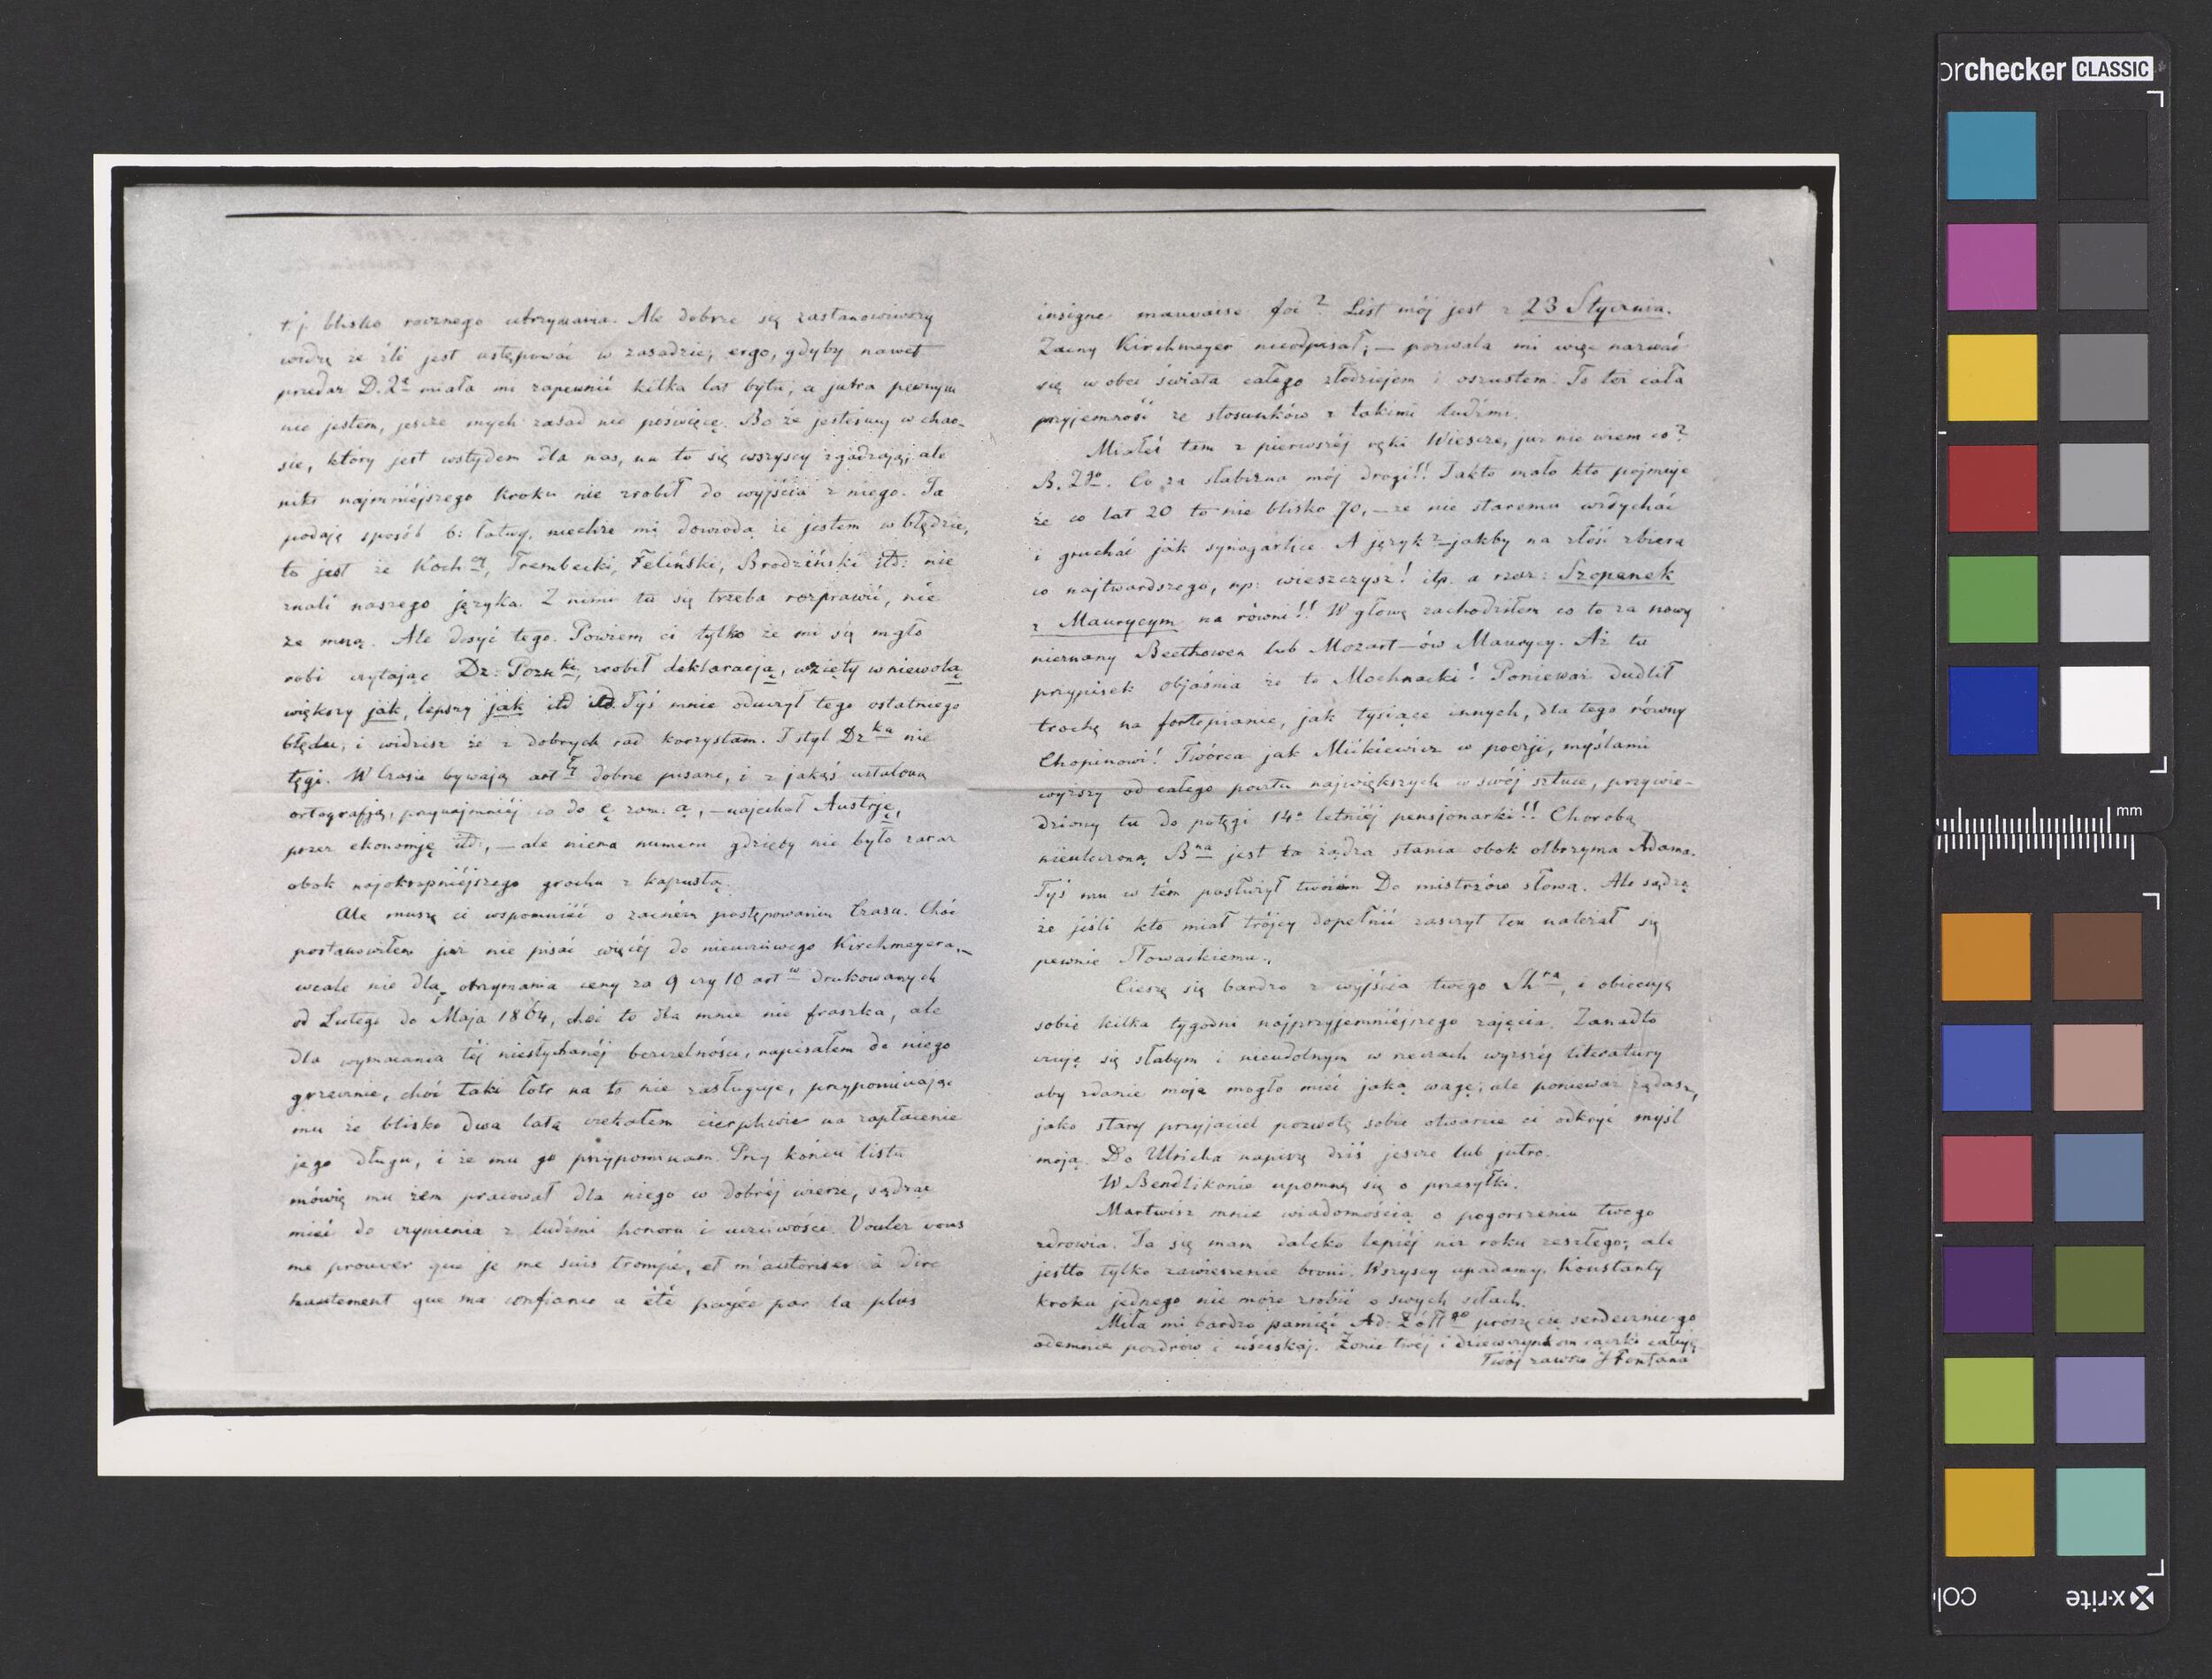 t.j. blisko rocznego utrzymania. Ale dobrze się zastanowiwszy
widzę że źle jest ustępować w zasadzie; ergo, gdyby nawet
przedaż D. miała mi zapewnić kilka lat bytu, a jutra pewnym
nie jestem, jeszcze mych zasad nie poświęcę. Bo że jesteśmy w chao-
sie, który jest wstydem dla nas, na to się wszyscy zgadzają; ale
nikt najmniejszego kroku nie zrobił do wyjścia z niego. Ja
podaję sposób b: łatwy, niechże mi dowiodą że jestem w błędzie,
to jest że Kochcy, Trembecki, Feliński, Brodziński itd: nie
znali naszego języka. Z nimi tu się trzeba rozprawić, nie
ze mną. Ale dosyć tego. Powiem ci tylko że mi się mgło
robi czytając Dz: Poznki, zrobił deklaracją, wzięty w niewolą
większy jak, lepszy jak itd itd. Tyś mnie oduczył tego ostatniego
błędu, i widzisz że z dobrych rad korzystam. I styl Dzka nie
tęgi. W Czasie bywają artły dobrze pisane, i z jakąś ustaloną
ortografją, przynajmniéj co do ę zam. ą, — najechał Austrję,
przez ekonomję itd:, — ale niema numeru gdzieby nie było zaraz
obok najokropniejszego grochu z kapustą.
Ale muszę ci wspomnieć o zacném postępowaniu Czasu. Choć
postanowiłem już nie pisać więcéj do nieuczciwego Kirchmayera, —
wcale nie dla otrzymania ceny za 9 czy 10 artw drukowanych
od Lutego do Maja 1864, choć to dla mnie nie fraszka, ale
dla wyznania téj niesłychanéj bezczelności, napisałem do niego
grzecznie, choć taki łotr na to nie zasługuje, przypominając
mu że blisko dwa lata czekałem cierpliwie na zapłacenie
jego długu, i że mu go przypominam. Przy końcu listu
mówię mu żem pracował dla niego w dobréj wierze, sądząc
mieć do czynienia z ludźmi honoru i uczciwości. Voulez vous
me prouver que je me suis trompé, et m'autoriser à dire
hautement que ma confiance a été payée par la plus
insigne mauvaise foi? List mój jest z 23 Stycznia.
Zacny Kirchmayer nieodpisał; — pozwala mi więc nazwać
się w obec świata całego złodziejem i oszustem. To też cała
przyjemność ze stosunków z takimi ludźmi.
Miałeś tam z pierwszéj ręki Wieszcze, już nie wiem co?
B. Zgo. Co za słabizna mój drogi!! Jakto mało kto pojmuje
że co lat 20 to nie blisko 70, — że nie staremu wzdychać
i gruchać jak synogarlice. A język? — jakby na złość zbiera
co najtwardszego, np: wieszczysz! itp. a rzecz: Szopenek
z Maurycym na równi!! W głowę zachodziłem co to za nowy
nieznany Beethowen lub Mozart — ów Maurycy. Aż tu
przypisek objaśnia że to Mochnacki! Ponieważ dudlił
trochę na fortepianie, jak tysiące innych, dla tego równy
Chopinowi! Twórca jak Mickiewicz w poezji, myślami
wyższy od całego pocztu największych w swéj sztuce, przywie-
dziony tu do potęgi 14o letniéj pensjonarki!! Chorobą
nieuleczoną Bna jest ta żądza stania obok olbrzyma Adama.
Tyś mu w tém posłużył twoiém Do mistrzów słowa. Ale sądzę
że jeśli kto miał trójcy dopełnić zaszczyt ten należał się
pewnie Słowackiemu.
Cieszę się bardzo z wyjścia twego Shra, i obiecuję
sobie kilka tygodni najprzyjemniejszego zajęcia. Zanadto
czuję się słabym i nieudolnym w rzeczach wyższéj literatury
aby zdanie moje mogło mieć jaką wagę; ale ponieważ żądasz,
jako stary przyjaciel pozwolę sobie otwarcie ci odkryć myśl
moją. Do Ulricha napiszę dziś jeszcze lub jutro.
W Bendlikonie upomnę się o przesyłki.
Martwisz mnie wiadomością o pogorszeniu twego
zdrowia. Ja się mam daleko lepiéj niż roku zeszłego; ale
jestto tylko zawieszenie broni. Wszyscy upadamy. Konstanty
kroku jednego nie może zrobić o swych siłach.
Miła mi bardzo pamięć Ad: Żółtgo proszę cię serdecznie go
odemnie pozdrów i uściskaj. Żonie twéj i dziewczynkom rączki całuję
Twój zawsze J Fontana
orchecker CLASSIC
mm
x-rite
col